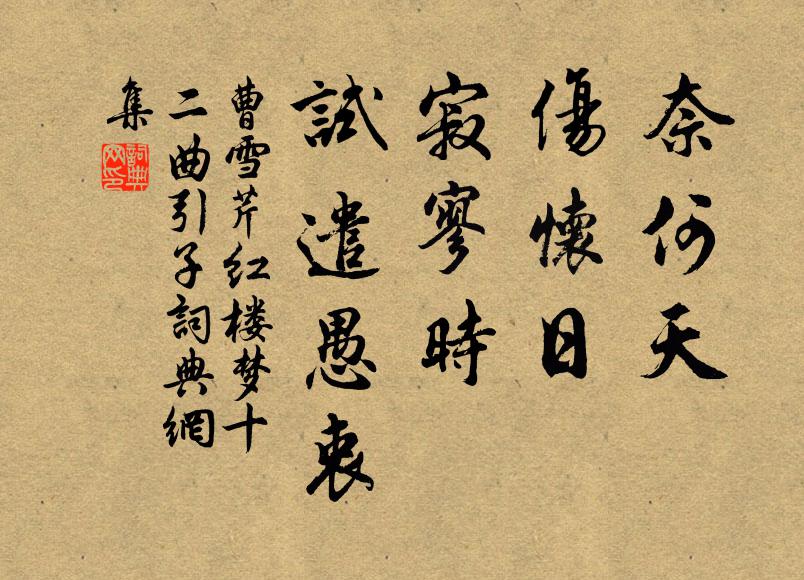 奈何天
傷懷日
寂寥時
試遣愚衷
曹雪芹红楼梦十
二曲引子詞典網
集
詞典
网印